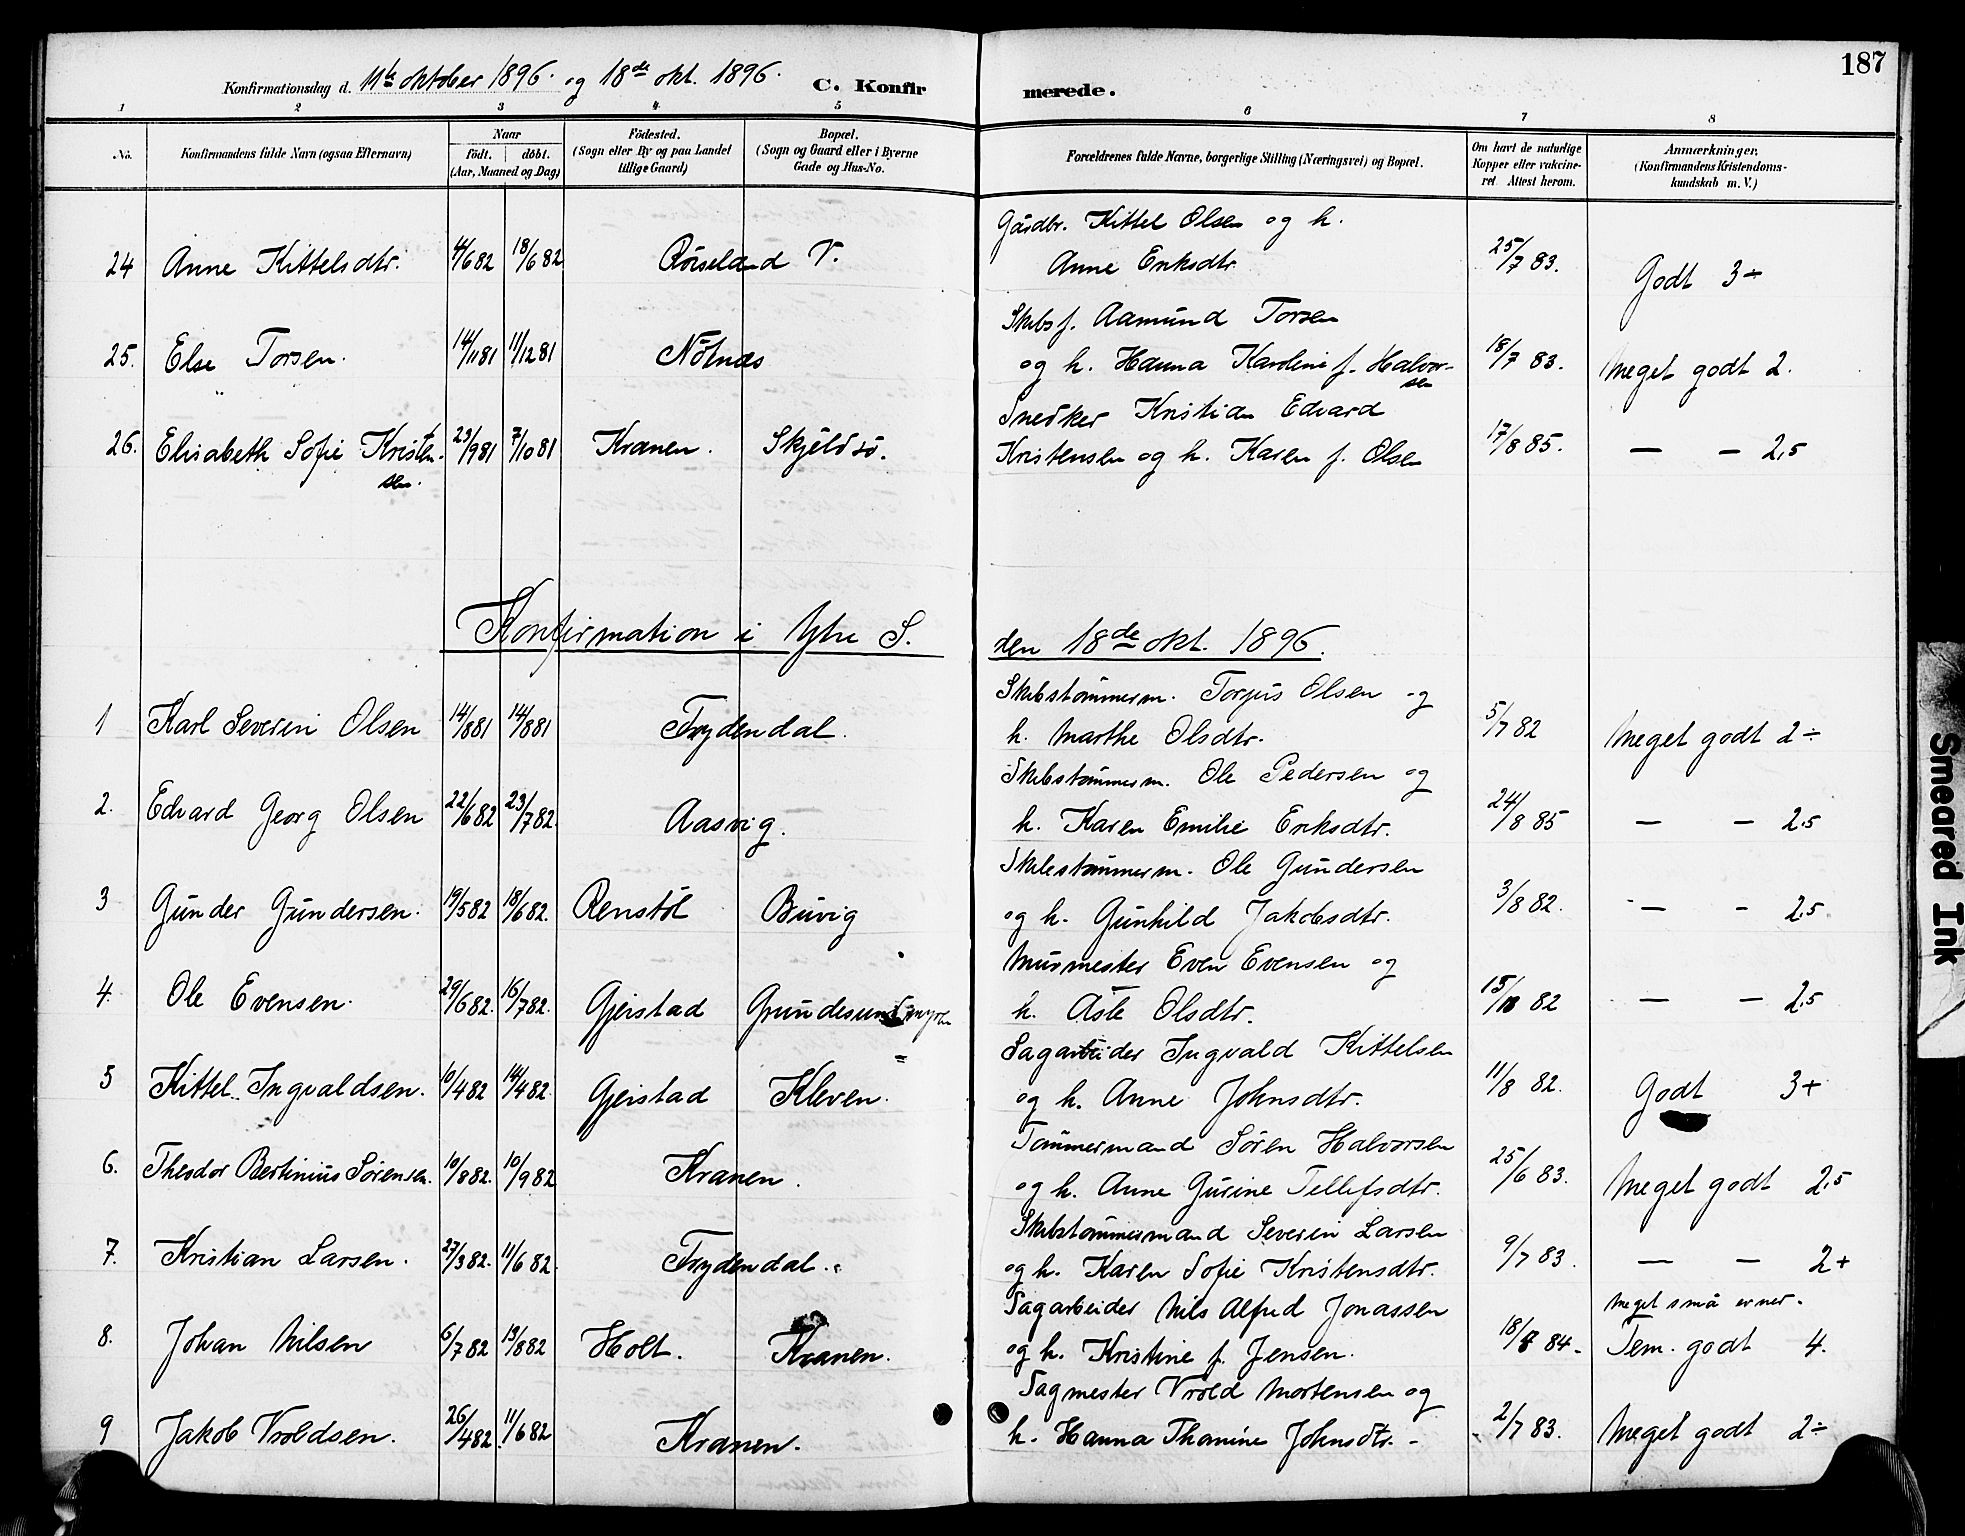 187
Konfirmationsdag d. 11te oktober 1896. og 18de okt. 1896. C. Konfirmerede.
1 2 3 4 5 6 7 8
No. Konfirmandens fulde Navn (ogsaa Efternavn) Naar födt. döbt. (Aar, Maaned og Dag) Födested. (Sogn eller By og paa Landet tillige Gaard) Bopæl. (Sogn og Gaard eller i Byerne Gade og Hus-No. Forældrenes fulde Navne, borgerlige Stilling (Næringsvei) og Bopæl. Om havt de naturlige Kopper eller vakcineret Attest herom. Anmærkninger, (Konfirmandens Kristendomskundskab m. V.)
Gårdbr. Kittel Olsen og h.
24 Anne Kittelsdtr. 4/6 82 18/6 82 Röiseland V. Anne Eriksdtr. 25/7 83. Godt 3÷
Skibsf. Aamund Torsen
25. Else Torsen. 14/11 81 11/12 81 Nötnæs og h. Hanna Karoline f. Halvorsen 18/7 83. Meget godt 2.
Snedker Kristian Edvard
26. Elisabeth Sofie Kristensen. 23/9 81 7/10 81 Kranen. Skjeldsö. Kristensen og h. Karen f. Olsen 17/8 85. — — 2,5
Konfirmation i Ytre S. den 18de okt. 1896.
Skibstömmerm. Torjus Olsen og
1 Karl Severin Olsen 14/8 81 14/8 81 Frydendal. h. Marthe Olsdtr. 5/7 82 Meget godt 2÷
Skibstömmerm. Ole Pedersen og
2. Edvard Georg Olsen 22/6 82 23/7 82. Aasvig. h. Karen Emilie Eriksdtr. 24/8 85 — — 2,5
Skibstömmerm. Ole Gundersen
3 Gunder Gundersen. 19/5 82 18/6 82. Renstöl Buvig og h. Gunhild Jakobsdtr. 3/8 82. — — 2,5
Murmester Even Evensen og
4. Ole Evensen. 29/6 82. 16/7 82. Gjerstad Grundesundmyren h. Åste Olsdtr. 15/10 82 — — 2,5
Sagarbeider Ingvald Kittelsen
5 Kittel Ingvaldsen. 10/4 82 14/4 82. Gjerstad Kleven. og h. Anne Johnsdtr. 11/8 82. Godt 3+
Tömmermand Sören Halvorsen
6. Theodor Bertinius Sörensen. 10/8 82. 10/9 82 Kranen. og h. Anne Gurine Tellefsdtr. 25/6 83. Meget godt 2,5
Skibstömmermand Severin Larsen
7. Kristian Larsen. 27/3 82. 11/6 82. Frydendal. og h. Karen Sofie Kristensdtr. 9/7 83. — — 2+
Sagarbeider Nils Alfred Jonassen Meget små evner.
8. Johan Nilsen 6/7 82 13/8 82 Holt. Kranen. og h. Kristine f. Jensen. 18/8 84. Tem. godt 4.
Sagmester Vrold Mortensen og
9 Jakob Vroldsen. 26/4 82 11/6 82 Kranen. h. Hanna Thomine Johnsdtr. 2/7 83. Meget godt 2÷
Smeared Ink